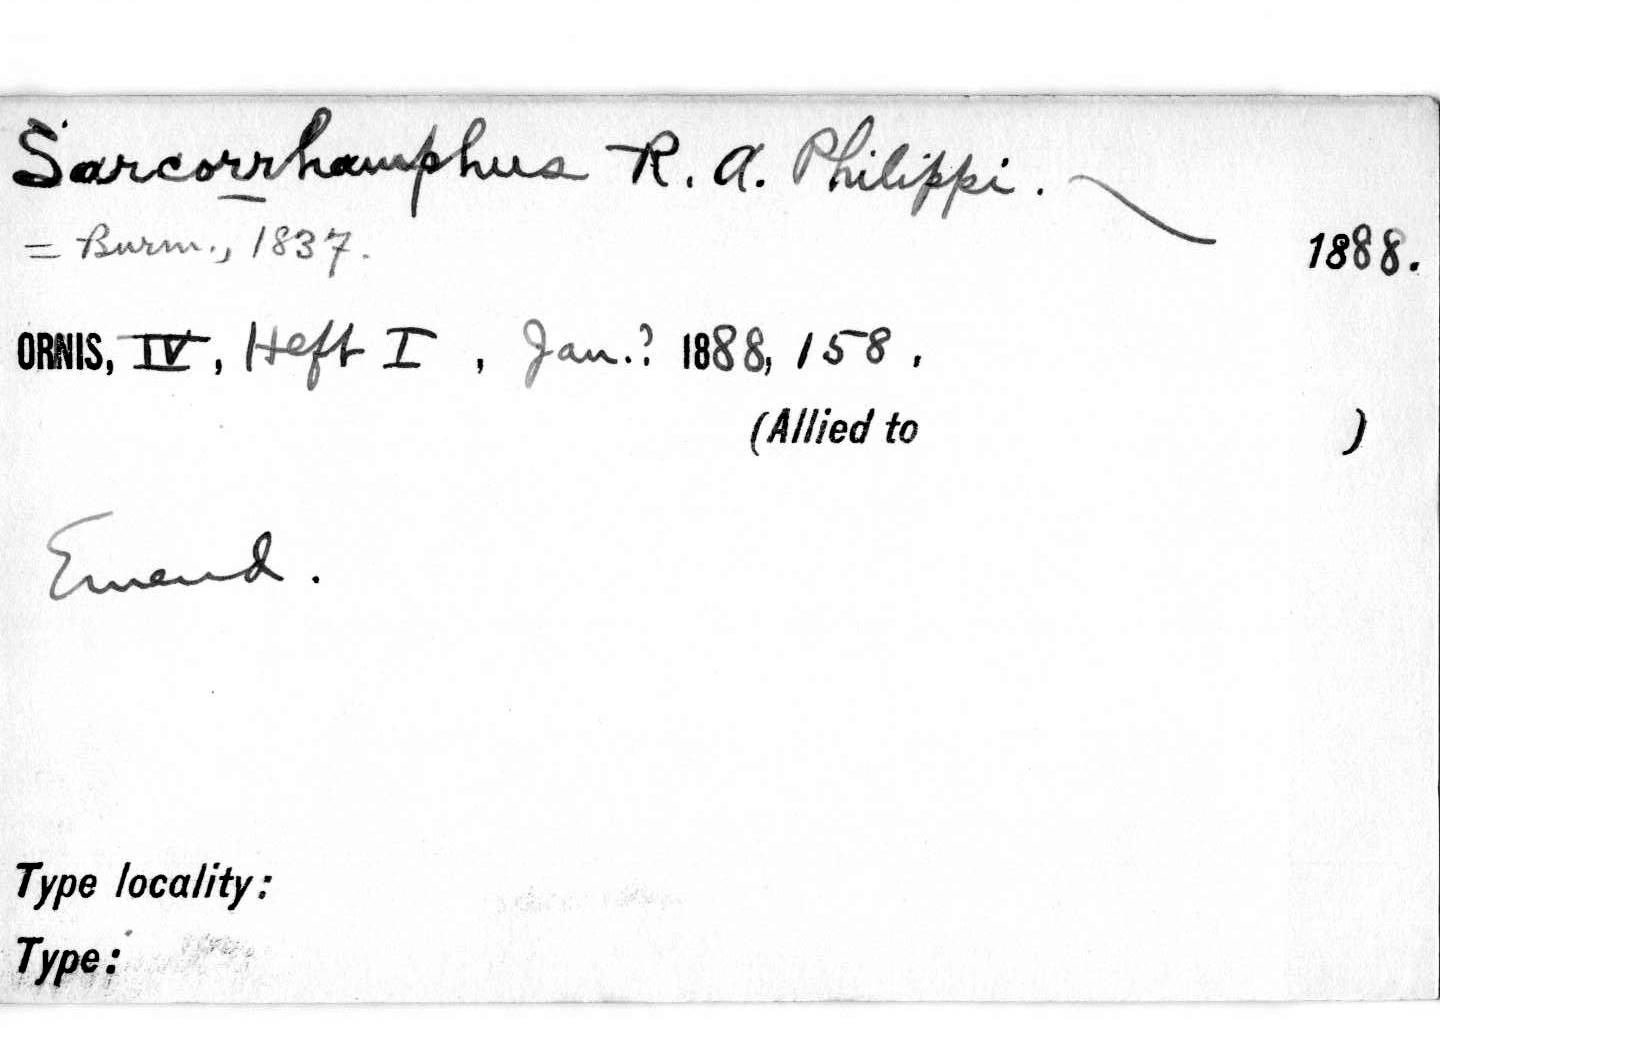 Sarcorrhamphus R. A. Philippi.
= Burm., 1837.
1888.
ORNIS, IV, Heft I, Jan.? 1888, 158.
(Allied to )
Emend.
Type locality:
Type: